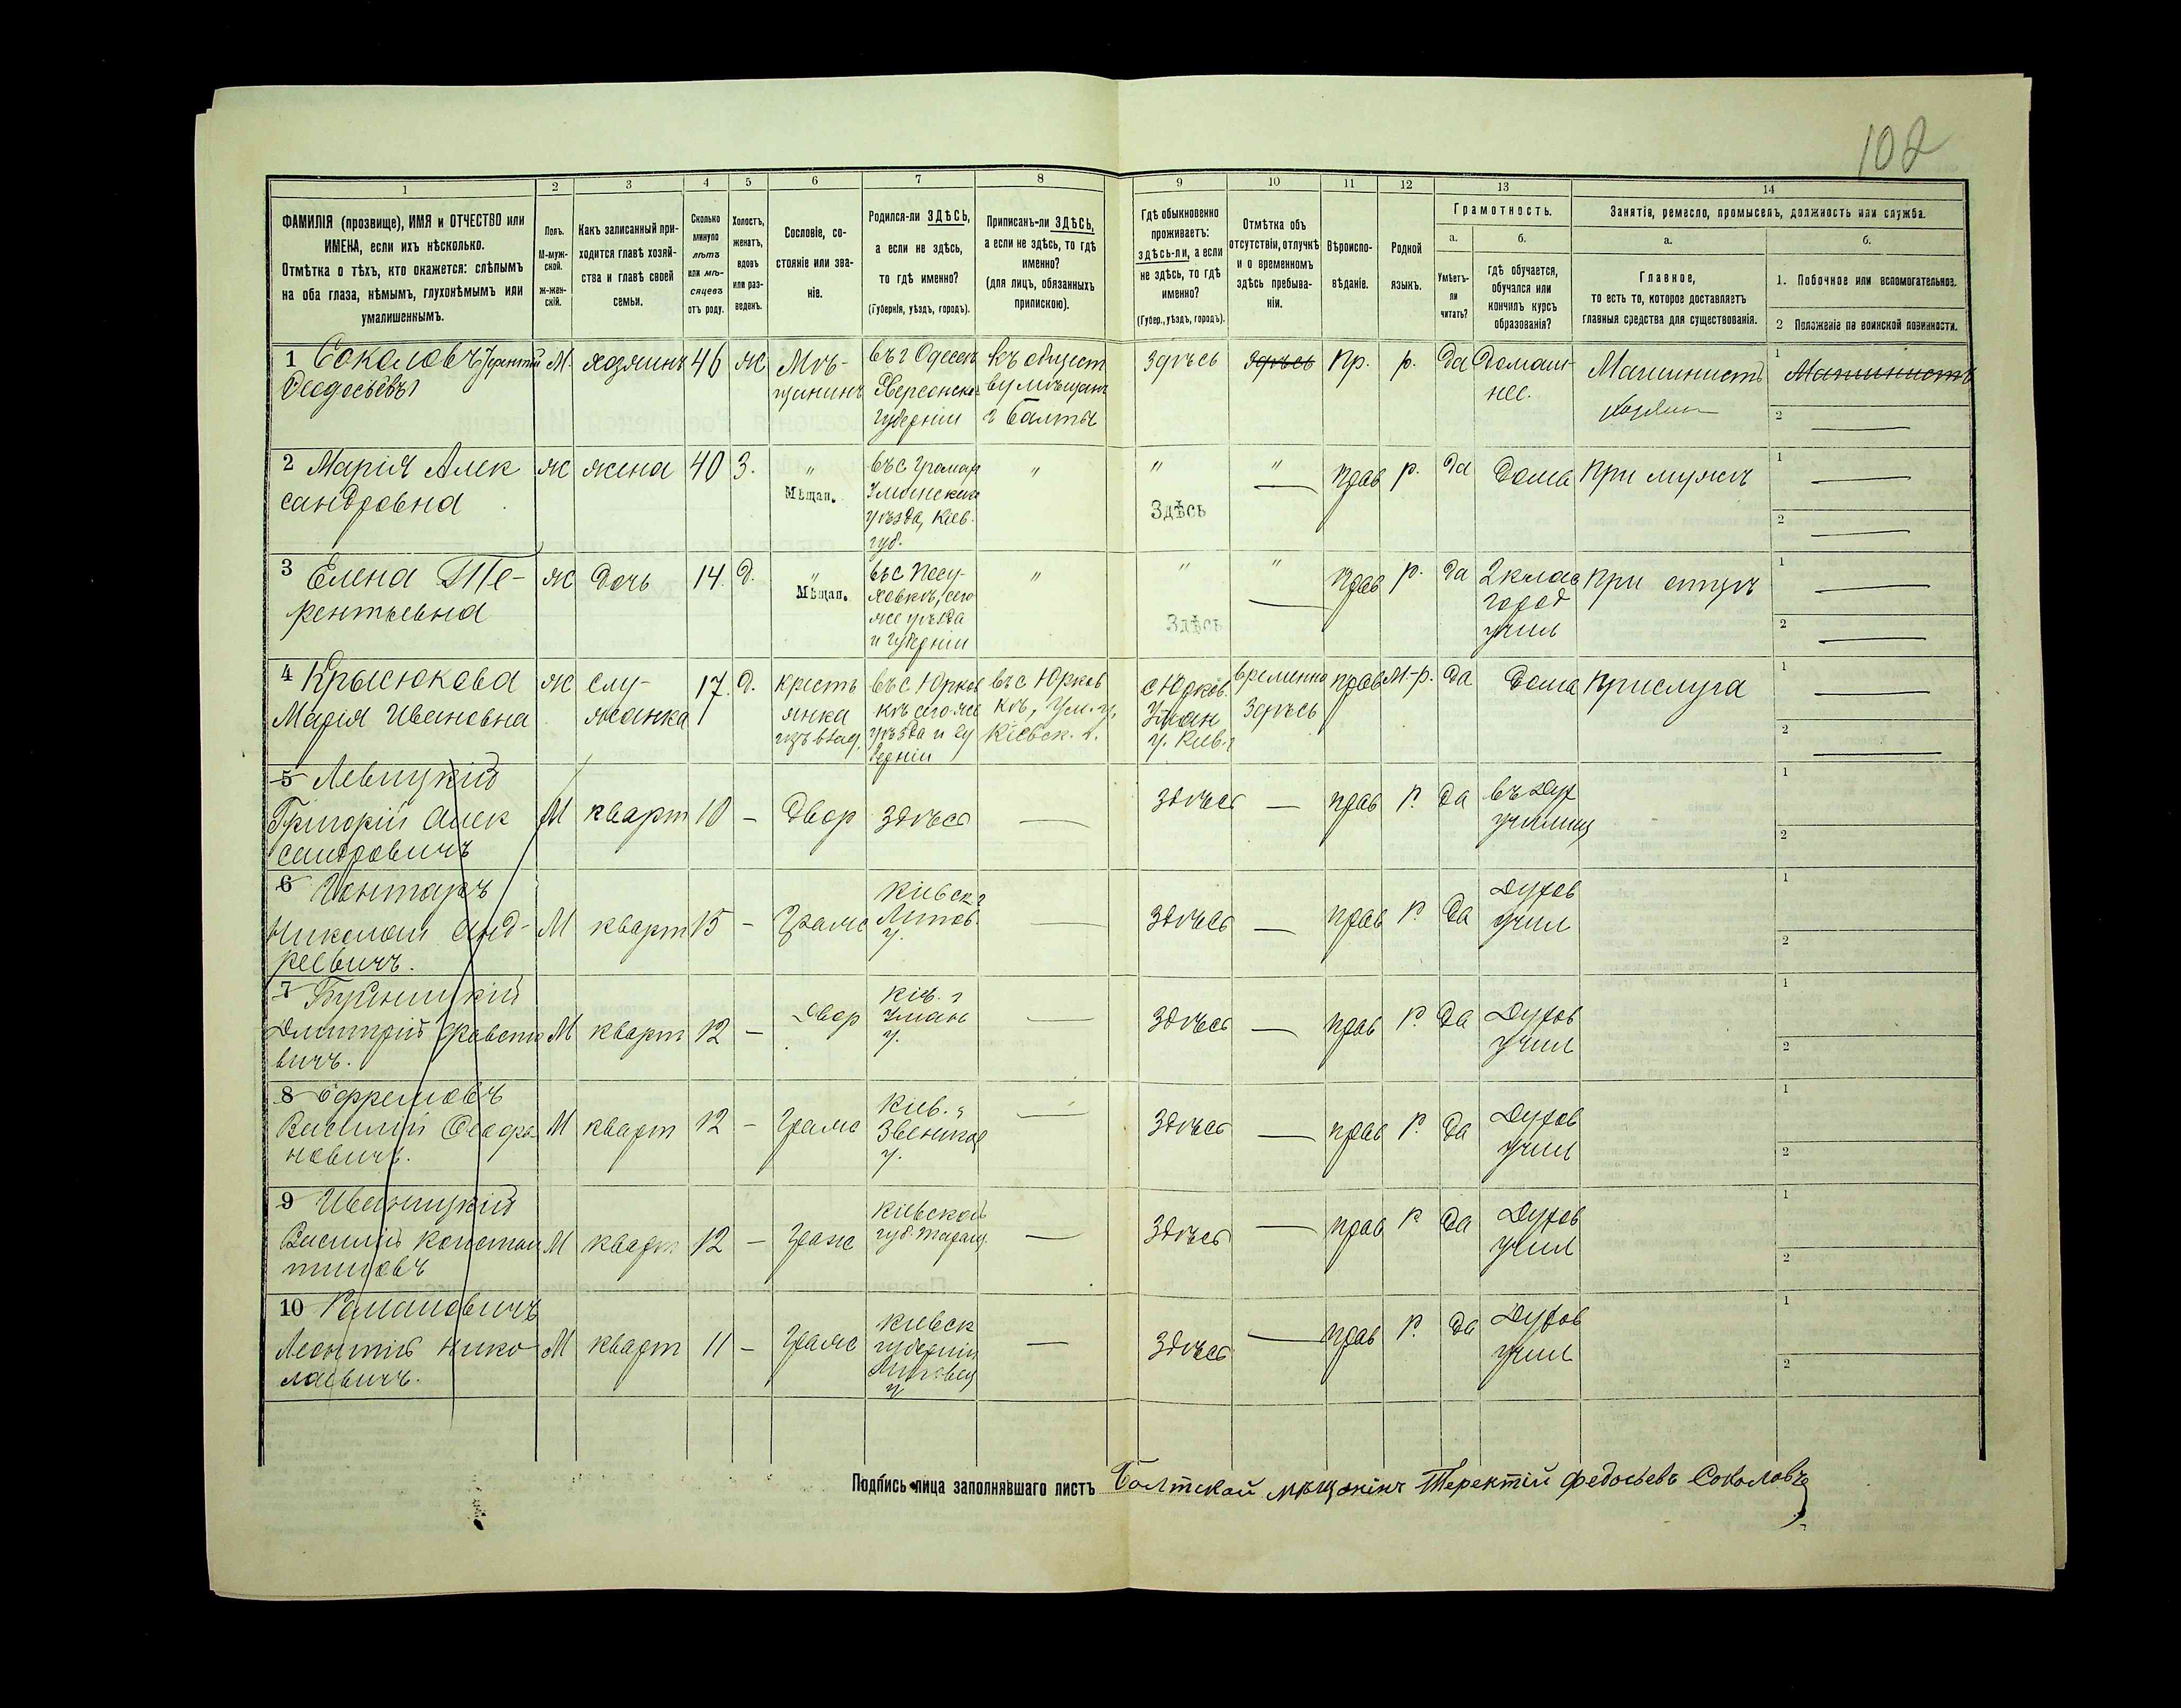 102
1
2
3
4
5
6
7
8
9
10
11
12
13
14
ФАМИЛІЯ (прозвище), ИМЯ и ОТЧЕСТВО или
ИМЕНА, если ихъ нѣсколько.
Отмѣтка о тѣхъ, кто окажется: слѣпымъ
на оба глаза, нѣмымъ, глухонѣмымъ или
умалишеннымъ.
Полъ.
М-муж-
ской.
Ж-жен-
скій.
Какъ записанный при-
ходится главѣ хозяй-
ства и главѣ своей
семьи.
Сколько
минуло
лѣтъ
или мѣ-
сяцевъ
отъ роду.
Холостъ,
женатъ,
вдовъ
или раз-
веденъ.
Сословіе, со-
стояніе или зва-
ніе.
Родился-ли ЗДѢСЬ,
а если не здѣсь,
то гдѣ именно?
(Губернія, уѣздъ, городъ).
Приписанъ-ли ЗДѢСЬ,
а если не здѣсь, то гдѣ
именно?
(для лицъ, обязанныхъ
припискою).
Гдѣ обыкновенно
проживаетъ:
здѣсь-ли, а если
не здѣсь, то гдѣ
именно?
(Губер., уѣздъ, городъ).
Отмѣтка объ
отсутствіи, отлучкѣ
и о временномъ
здѣсь пребыва-
ніи.
Вѣроиспо-
вѣданіе.
Родной
языкъ.
Грамотность.
а.
Умѣетъ-
ли
читать?
б.
гдѣ обучается,
обучался или
кончилъ курсъ
образованія?
Занятіе, ремесло, промыселъ, должность или служба.
а.
Главное,
то есть то, которое доставляетъ
главныя средства для существованія.
б.
1. Побочное или вспомогательное.
2 Положеніе по воинской повинности.
1 Соколовъ Терентій
Феодосьевъ
М.
хозяинъ
46
ж
Мѣ-
щанинъ
въ г Одессѣ
Херсонской
Губерніи
къ общест
ву мѣщанъ
г Балты
здѣсь
здѣсь
пр.
р.
да
домаш-
нее.
Машинистъ
хозяин
1 Машинистъ
2 —
2 Марія Алек
сандровна
ж
жена
40
з.
"
Мѣщан.
Уманскаго
уѣзда, Кіев.
губ.
"
"
Здѣсь
"
—
прав
р.
да
дома
при мужѣ
1 —
2 —
3 Елена Те-
рентьевна
ж
дочь
14.
д.
"
Мѣщан.
же уѣзда
и губерніи
"
"
Здѣсь
"
—
прав
р.
да
2 клас
город
учил
при отцѣ
1 —
2 —
4 Крысюкова
Марія Ивановна
ж
слу-
жанка
17.
д.
кресть
янка
изъ влад.
въ с Юрков
кѣ сего же
уѣзда и гу
берніи
въ с Юрков
кѣ, Ум. у.
Кіевск. г.
с Юрков.
Уман
у. Кіев. г
временно
здѣсь
прав
м-р.
да
дома
прислуга
1 —
2 —
5 Левицкій
Григорій Алек
сандровичъ
М
кварт
10
—
двор
здѣсь
—
здѣсь
—
прав
р.
да
въ дух
училищ
1
2
6 Гонтарь
Николай Анд-
реевичъ.
М
кварт
15
—
Кіевск г
Липов.
у.
—
здѣсь
—
прав
р.
да
духов
учил
1
2
7
Дмитрій
вичъ.
М
кварт
12
—
двор
кіев. г
Умань
у.
—
здѣсь
—
прав
р.
да
духов
учил
1
2
8 Ефремовъ
Василій Феофа
новичъ.
М
кварт
12
—
Кіев. г
Звенигор
у.
—
здѣсь
—
прав
р.
да
духов
учил
1
2
9 Иваницкій
Василій Констан
тиновъ
М
кварт
12
—
Кіевской
губ. Таращ.
—
здѣсь
—
прав
р
да
духов
учил
1
2
10 Романовичъ
Леонтій Нико
лаевичъ.
М
кварт
11
—
Кіевск
губерніи
у
—
здѣсь
—
прав
р.
да
духов
учил
1
2
Подпись лица заполнявшаго листъ Болтской мѣщанінъ Терентій Федосьевъ Соколовъ